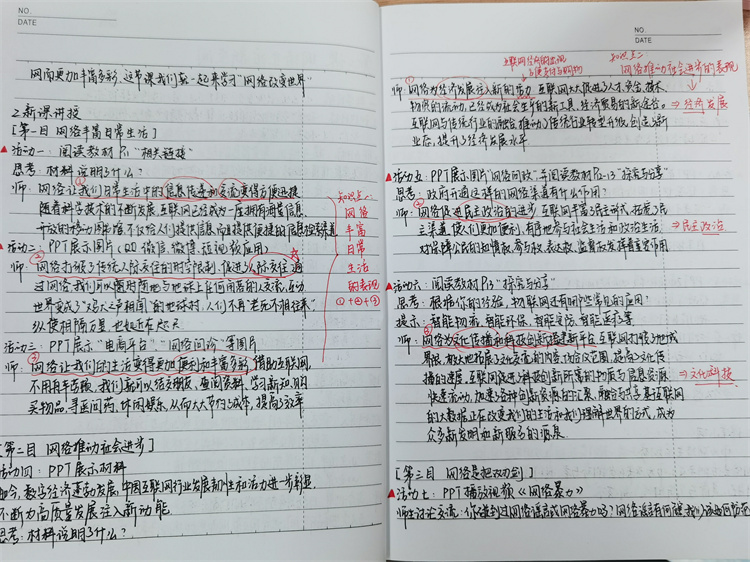 NO.
DATE
网而更加丰富多彩，这节课我们就一起来学习“网络改变世界”
2.新课讲授
[第一目 网络丰富日常生活]
活动一：阅读教材P11“相关链接”
思考：材料说明了什么？
师：①网络让我们日常生活中的信息传递和交流变得方便迅捷
随着科学技术的不断发展，互联网已经成为一座拥有海量信息、
开放的 它不仅给人们提供信息，而且提供便捷的信息搜索渠道
活动二：PPT展示图片（QQ 微信，微博，短视频应用）
师：②网络打破了传统人际交往的时空限制，促进了人际交往 通
过网络，我们可以随时随地与地球上任何角落的人交流，互动
世界变成了“鸡犬之声相闻”的地球村，人们不再“老死不相往来”
纵使相隔万里，也如近在咫尺
活动三：PPT展示“电商平台”“网络问诊”等图片
师：③网络让我们的生活变得更加便利和丰富多彩 借助互联网，
不用出手、我们就可以结交朋友、查阅资料、学习新知、购
买物品、寻医问药、休闲娱乐，从而大大节约了成本，提高了效率
知识点一：
网络
丰富
日常
生活
的表现
①+②+③
[第二目 网络推动社会进步]
活动四：PPT展示材料
如今，数字经济蓬勃发展，中国互联网行业发展韧性和活力进一步彰显，
不断为高质量发展注入新动能
思考：材料说明了什么？
NO.
DATE
知识点二：
网络推动社会进步的表现
师：①网络为经济发展注入新的活力 互联网大大促进了人才、资金、技术、
物资的流动，已经成为社会生产的新工具、经济贸易的新途径。
互联网与传统行业的融合，推动了传统行业转型升级，创造了新
业态，提升了经济发展水平
⇒经济发展
活动五：PPT展示图片“网络问政”，并阅读教材P12-13“探究与分享”
思考：政府开通这样的网络渠道有什么作用？
师：②网络促进民主政治的进步 互联网丰富了民主形式，拓宽了民
主渠道，使人们更加便利、有序地参与社会生活和政治生活，
对保障公民的知情权、参与权、表达权、监督权发挥着重要作用
⇒民主政治
活动六：阅读教材P13“探究与分享”
思考：根据你的经验，物联网还有哪些常见的应用？
提示：智能物流、智能环保、智能安防、智能医疗等
师：③网络为文化传播和科技创新搭建新平台 互联网打破了地域
界限，极大地拓展了文化交流的内容、场合及范围，提高了文化传
播的速度，互联网促进了科技创新所需的物质与信息资源
快速流动，加速了各种创新资源的汇聚、融合与共享，基于互联网
的大数据正在改变我们的生活和我们理解世界的方式，成为
众多新发明和新服务的源泉
⇒文化科技
[第三目 网络是把双刃剑]
活动七：PPT播放视频《网络暴力》
师生讨论交流：你碰到过网络谣言或网络暴力吗？网络谣言有何危害？我们应该如何防范